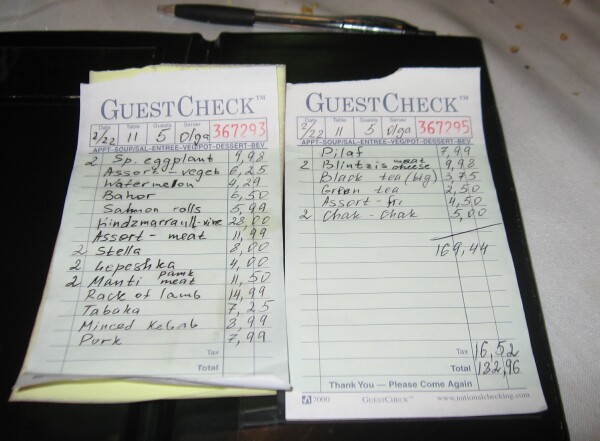 GUESTCHECK™
Date Table Guests Server
2/22 11 5 Olga 367293
APPT-SOUP/SAL-ENTREE-VEG/POT-DESSERT-BEV
2 Sp. eggplant 9,98
Assort - veget 6,25
Watermelon 4,29
Bahor 6,50
Salmon rolls 5,99
Kindzmarrauli-wine 28,00
Assort - meat 11,99
2 Stella 8,00
2 Lepeshka 4,00
2 Manti pamk meat 11,50
Rack of lamb 14,99
Tabaka 7,25
Minced Kebab 8,99
Purk 7,99
Tax
Total
GUESTCHECK™
Date Table Guests Server
2/22 11 5 Olga 367295
APPT-SOUP/SAL-ENTREE-VEG/POT-DESSERT-BEV
Pilaf 7,99
2 Blintzis meat cheese 9,98
Black tea (big) 3,75
Green tea 2,50
Assort - fri 4,50
2 Chak - Chak 5,00
169,44
Tax 16,52
Total 182,96
Thank You — Please Come Again
7000 GUESTCHECK™ www.nationalchecking.com